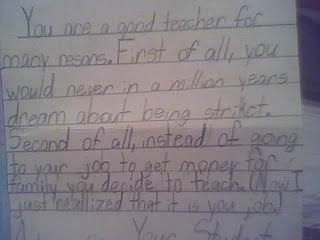 You are a good teacher for
many resons. First of all, you
would never in a million years
dream about being strikct.
Second of all, instead of going
to your job to get money for
family you decide to teach. (Now I
just reallized that it is you job.)
Your Student